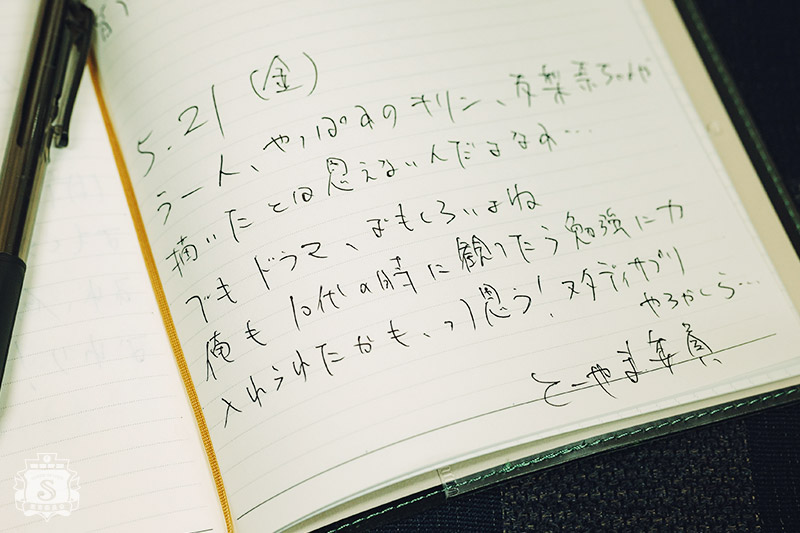 5.21 (金)
うーん、やっぱあのキリン、友梨奈ちゃんが
描いたとは思えないんだよなぁ…
でもドラマ、おもしろいよね
俺も10代の時に観てたら勉強に力
入れられたかも、って思う!スタディサプリ
やろかしら…
とーやま委員
S